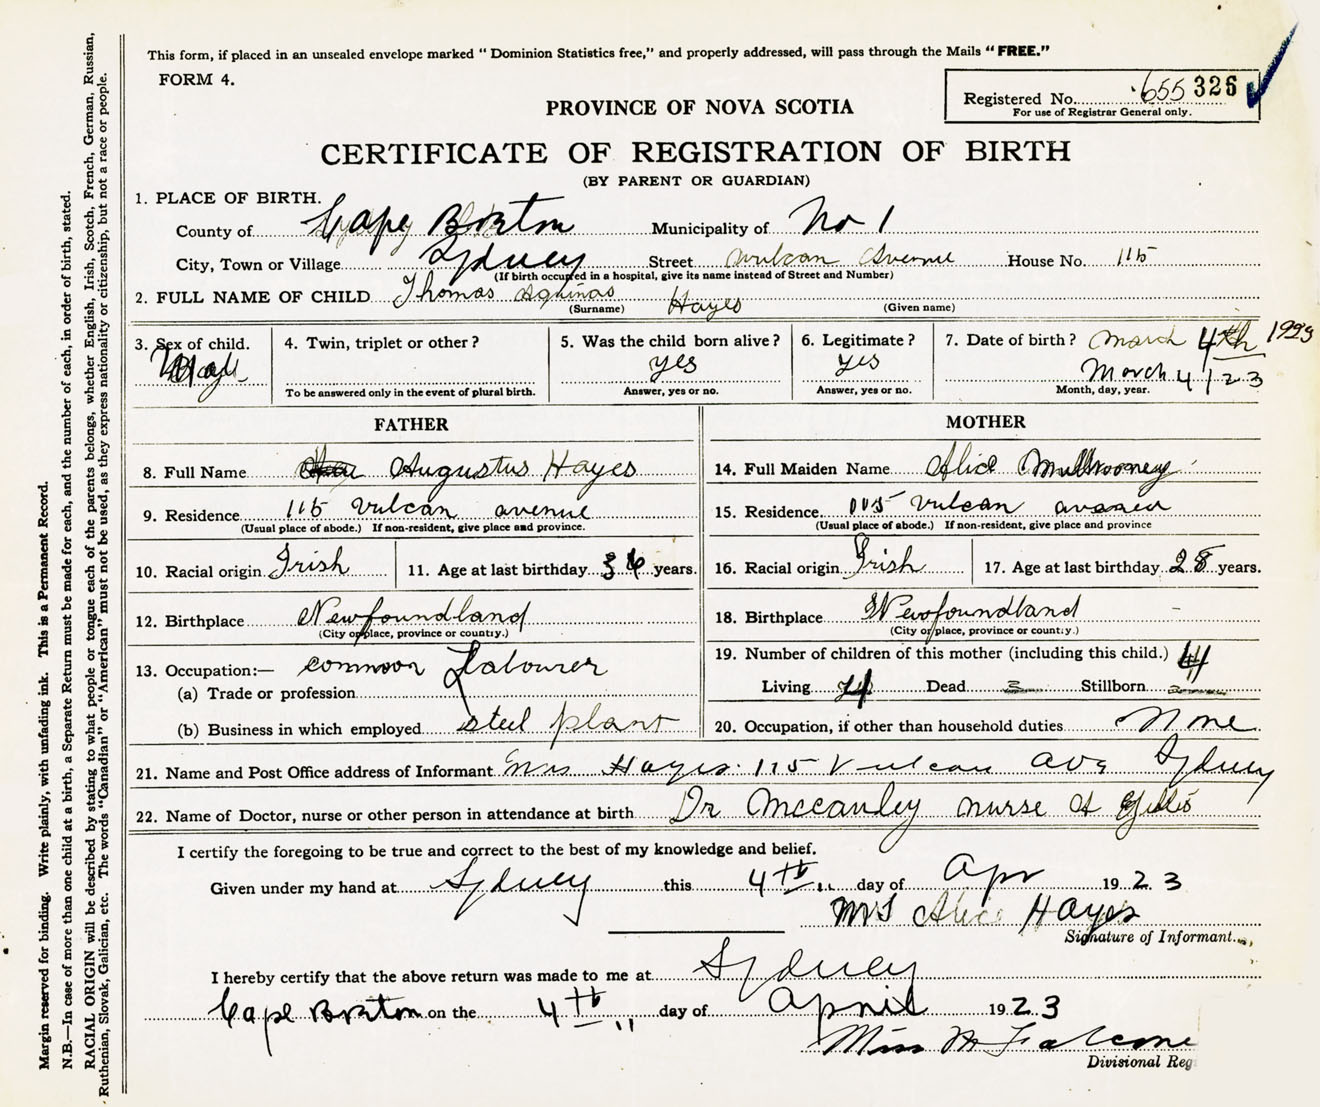 This form, if placed in an unsealed envelope marked "Dominion Statistics free," and properly addressed, will pass through the Mails "FREE."
FORM 4.
Registered No. 655 326
For use of Registrar General only.
PROVINCE OF NOVA SCOTIA
CERTIFICATE OF REGISTRATION OF BIRTH
(BY PARENT OR GUARDIAN)
1. PLACE OF BIRTH.
County of Cape Breton Municipality of No 1
City, Town or Village Sydney Street vulcan Avenue House No. 115
(If birth occurred in a hospital, give its name instead of Street and Number)
2. FULL NAME OF CHILD Thomas Aquinas Hayes
(Surname) (Given name)
3. Sex of child. 4. Twin, triplet or other? 5. Was the child born alive? 6. Legitimate? 7. Date of birth? March 4th 1923
yes yes March 4 / 23
To be answered only in the event of plural birth. Answer, yes or no. Answer, yes or no. Month, day, year.
FATHER MOTHER
8. Full Name Augustus Hayes
9. Residence 115 vulcan avenue
(Usual place of abode.) If non-resident, give place and province.
10. Racial origin Irish 11. Age at last birthday years.
12. Birthplace Newfoundland
(City or place, province or country.)
13. Occupation:— common Labourer
(a) Trade or profession
(b) Business in which employed steel plant
14. Full Maiden Name Alice Mullrooney
15. Residence 115 vulcan
(Usual place of abode.) If non-resident, give place and province
16. Racial origin Irish 17. Age at last birthday 28 years.
18. Birthplace Newfoundland
(City or place, province or country.)
19. Number of children of this mother (including this child.) 4
Living 4 Dead Stillborn
20. Occupation, if other than household duties None
21. Name and Post Office address of Informant Mrs Hayes. 115 Vulcan Ave Sydney
22. Name of Doctor, nurse or other person in attendance at birth Dr Mccauley nurse A Gillis
I certify the foregoing to be true and correct to the best of my knowledge and belief.
Given under my hand at Sydney this 4th day of Apr 1923
Mrs Alice Hayes
Signature of Informant.
I hereby certify that the above return was made to me at Sydney
Cape Breton on the 4th day of April 1923
Miss
Divisional Reg
Margin reserved for binding. Write plainly, with unfading ink. This is a Permanent Record.
N.B.—In case of more than one child at a birth, a Separate Return must be made for each, and the number of each, in order of birth, stated.
RACIAL ORIGIN will be described by stating to what people or tongue each of the parents belongs, whether English, Irish, Scotch, French, German, Russian,
Ruthenian, Slovak, Galician, etc. The words "Canadian" or "American" must not be used, as they express nationality or citizenship, but not a race or people.